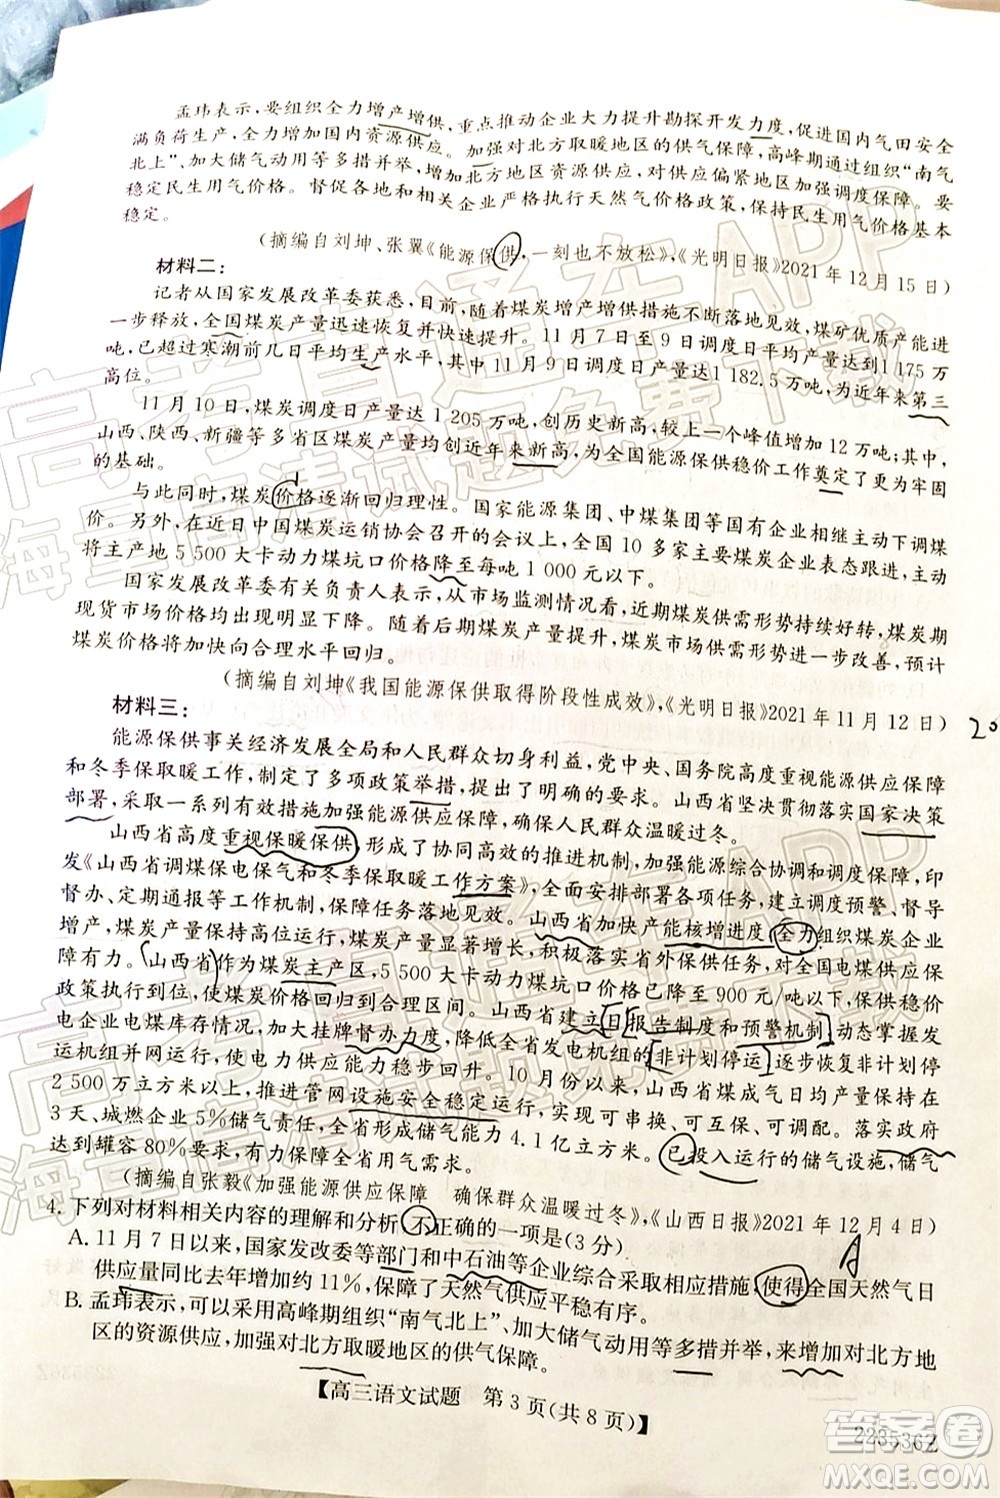 孟玮表示,要组织全力增产增供,重点推动企业大力提升勘探开发力度,促进国内气田安全
满负荷生产,全力增加国内资源供应。加强对北方取暖地区的供气保障,高峰期通过组织“南气
北上”、加大储气动用等多措并举,增加北方地区资源供应,对供应偏紧地区加强调度保障。要
稳定民生用气价格。督促各地和相关企业严格执行天然气价格政策,保持民生用气价格基本
稳定。
(摘编自刘坤、张翼《能源保供,一刻也不放松》,《光明日报》2021年12月15日)
材料二:
记者从国家发展改革委获悉,目前,随着煤炭增产增供措施不断落地见效,煤矿优质产能进
一步释放,全国煤炭产量迅速恢复并快速提升。11月7日至9日调度日均产量达到1 175万
吨,已超过寒潮前几日平均生产水平,其中11月9日调度日产量达到1 182.5万吨,为近年来第三
高位。
11月10日,煤炭调度日产量达1 205万吨,创历史新高,较上一个峰值增加12万吨;内蒙古、
山西、陕西、新疆等多省区煤炭产量均创近年来新高,为全国能源保供稳价工作奠定了更为牢固
的基础。
与此同时,煤炭价格逐渐回归理性。国家能源集团、中煤集团等国有企业相继主动下调煤
价。另外,在近日中国煤炭运销协会召开的会议上,全国10多家主要煤炭企业表态跟进,主动
将主产地5 500大卡动力煤坑口价格降至每吨1 000元以下。
国家发展改革委有关负责人表示,从市场监测情况看,近期煤炭供需形势持续好转,煤炭期
现货市场价格均出现明显下降。随着后期煤炭产量提升,煤炭市场供需形势将进一步改善,预计
煤炭价格将加快向合理水平回归。
(摘编自刘坤《我国能源保供取得阶段性成效》,《光明日报》2021年11月12日)
材料三:
能源保供事关经济发展全局和人民群众切身利益,党中央、国务院高度重视能源供应保障
和冬季保取暖工作,制定了一系列政策举措,提出了明确的要求。山西省坚决贯彻落实国家决策
部署,采取一系列有效措施加强能源供应保障,确保人民群众温暖过冬。
山西省高度重视保暖保供,形成了协同高效的推进机制,加强能源综合协调和调度调节,印
发《山西省调煤保电保气和冬季保取暖工作方案》,全面安排部署各项任务,建立调度预警、督导
督办、定期通报等工作机制,保障任务落地见效。山西省加快产能核增进度,全力组织煤炭企业
增产,煤炭产量保持高位运行,煤炭产量显著增长,积极落实省外保供任务,对全国电煤供应保
障有力。山西省作为煤炭主产区,5 500大卡动力煤坑口价格已降至900元/吨以下,保供稳价
政策执行到位,煤炭价格回归到合理区间。山西省建立日报告制度和预警机制,动态掌握发
电企业电煤库存情况,加大挂牌督办力度,降低全省发电机组的非计划停运,逐步恢复非计划停
运机组并网运行,使电力供应能力显著提升。10月份以来,山西省煤成气日均产量保持在
2 500万立方米以上,推进管网设施安全稳定运行,实现应联尽联,可串换、可互保。落实政府
3天、城燃企业5%储气责任,全省形成储气能力4.1亿立方米。已投入运行的储气设施,储气
达到罐容80%要求,有力保障全省用气需求。
(摘编自张毅《加强能源供应保障 确保群众温暖过冬》,《山西日报》2021年12月4日)
4. 下列对材料相关内容的理解和分析,不正确的一项是(3分)
A. 11月7日以来,国家发改委等部门和中石油等企业综合采取相应措施,使得全国天然气日
供应量同比去年增加约11%,保障了天然气供应平稳有序。
B. 孟玮表示,可以采用高峰期组织“南气北上”、加大储气动用等多措并举,增加对北方地
区的资源供应,加强对北方取暖地区的供气保障。
A
20
【高三语文试题 第3页(共8页)】
223536Z
高考直通车APP
海量高清试题免费下载
高考直通车APP
答案圈
MXQE.COM